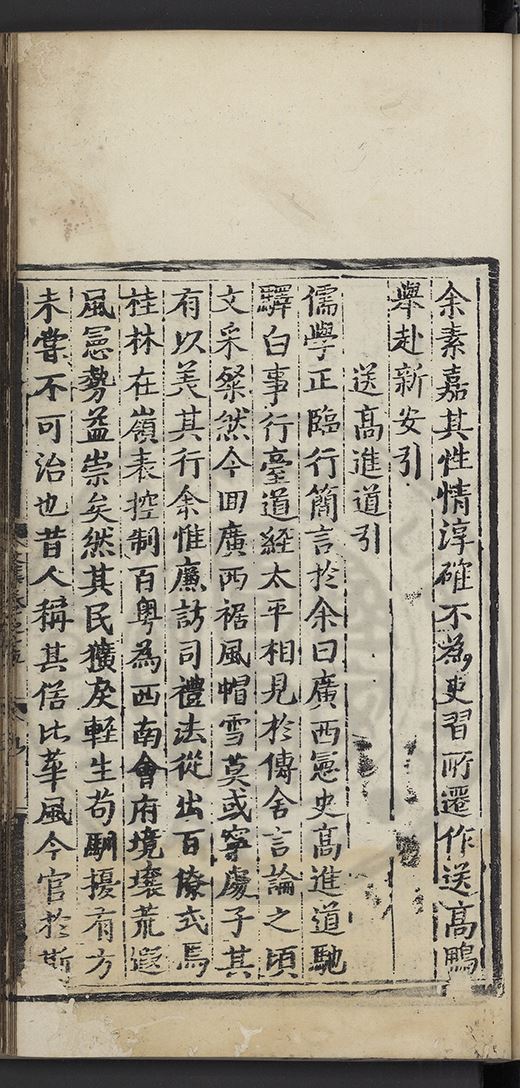 余素嘉其性情淳確不為吏習所遷作送高鵬
舉赴新安引
送高進道引
儒學正臨行簡言於余曰廣西憲史高進道馳
驛白事行臺道經太平相見於傳舍言論之頃
文采粲然今囬廣西裾風帽雪莫或寧處子其
有以美其行余惟廉訪司禮法從出百僚式焉
桂林在嶺表控制百粤為西南會府境壤荒遐
風憲勢益崇矣然其民獷戾輕生苟馴擾有方
未甞不可治也昔人稱其俗比華風今官於斯